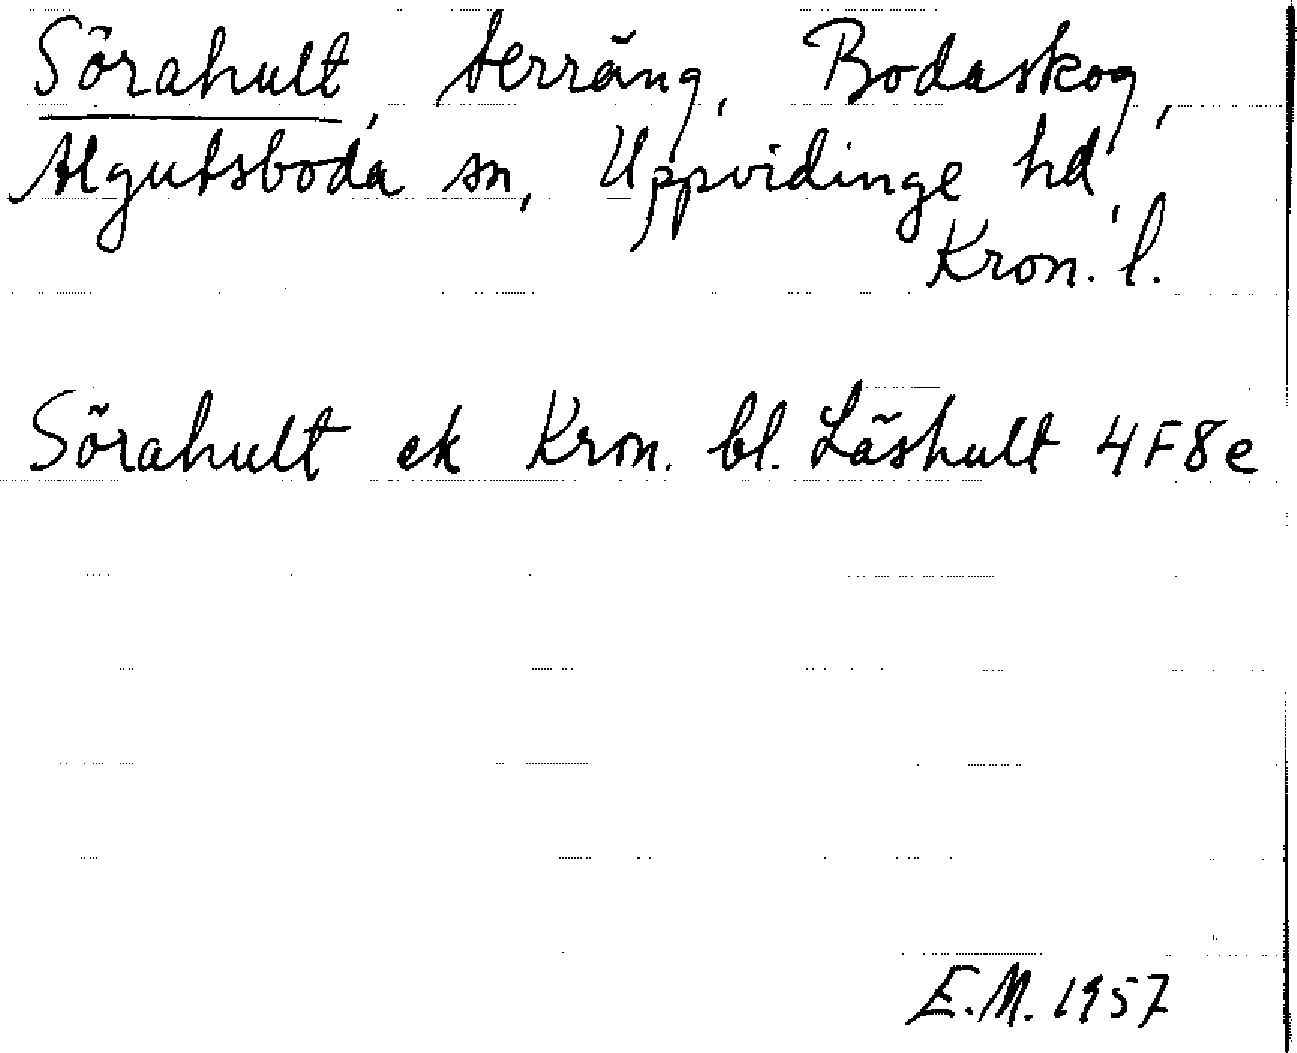 Sörahult, terräng, Bodaskog,
Algutsboda sn, Uppvidinge hd,
Kron. l.
Sörahult ek Kron. bl. Låshult 4F8e
E.M. 1957